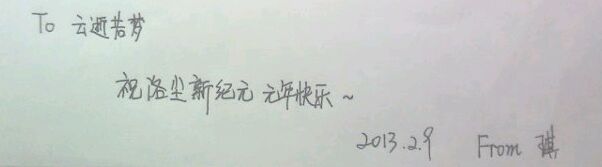 To 云逝若梦
祝洛尘新纪元 元年快乐~
2013.2.9 From 琪